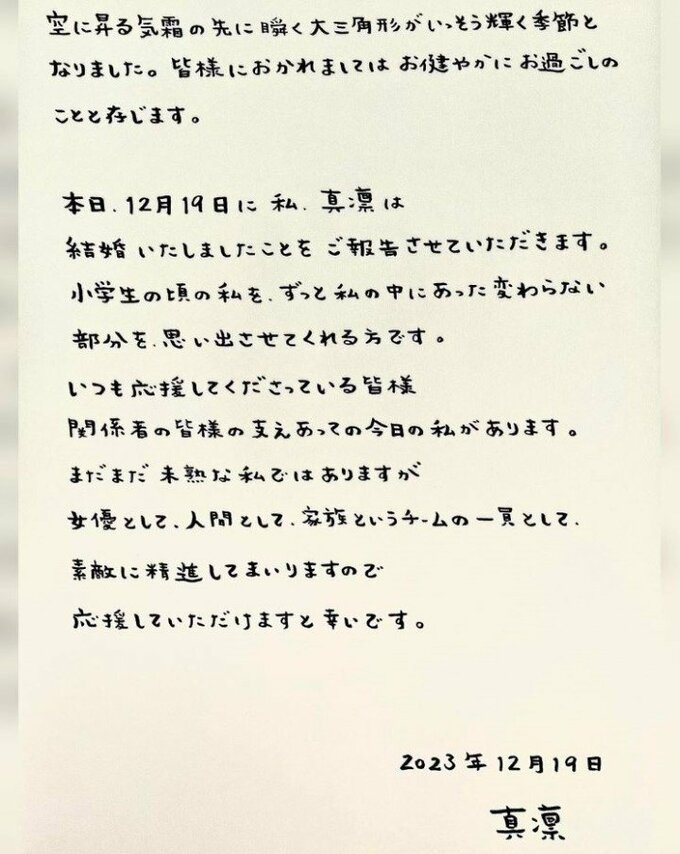 空に昇る気霜の先に瞬く大三角形がいっそう輝く季節と
なりました。皆様におかれましてはお健やかにお過ごしの
ことと存じます。
本日、12月19日に私、真凛は
結婚いたしましたことをご報告させていただきます。
小学生の頃の私を、ずっと私の中にあった変わらない
部分を、思い出させてくれる方です。
いつも応援してくださっている皆様
関係者の皆様の支えあっての今日の私があります。
まだまだ未熟な私ではありますが
女優として、人間として、家族というチームの一員として、
素敵に精進してまいりますので
応援していただけますと幸いです。
2023年12月19日
真凛